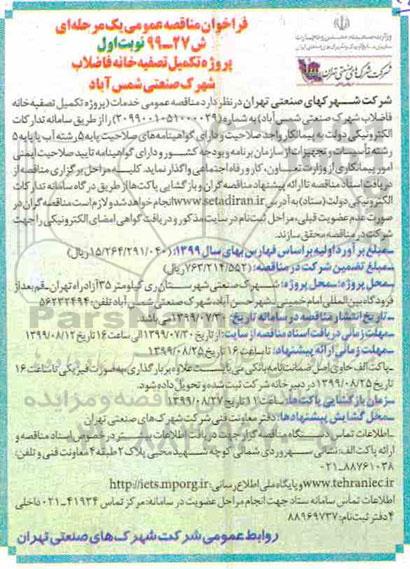 فراخوان مناقصه عمومی یک مرحله‌ای
ش ۲۷-۹۹ نوبت اول
پروژه تکمیل تصفیه خانه فاضلاب
شهرک صنعتی شمس آباد
شرکت شهرکهای صنعتی تهران
شرکت شهرکهای صنعتی تهران در نظر دارد مناقصه عمومی خدمات (پروژه تکمیل تصفیه خانه
فاضلاب شهرک صنعتی شمس آباد) به شماره (۲۰۹۹۰۰۱۰۵۱۰۰۰۰۲۹) را از طریق سامانه تدارکات
الکترونیکی دولت به پیمانکار واجد صلاحیت و دارای گواهینامه های صلاحیت پایه ۵ رشته آب یا پایه ۵
رشته تأسیسات و تجهیزات از سازمان برنامه و بودجه کشور و دارای گواهینامه تایید صلاحیت ایمنی
امور پیمانکاری از وزارت تعاون، کار و رفاه اجتماعی واگذار نماید. کلیه مراحل برگزاری مناقصه از
دریافت اسناد مناقصه تا ارائه پیشنهاد مناقصه گران و بازگشایی پاکت‌ها از طریق درگاه سامانه تدارکات
الکترونیکی دولت (ستاد) به آدرس www.setadiran.ir انجام خواهد شد و لازم است مناقصه گران در
صورت عدم عضویت قبلی، مراحل ثبت نام در سایت مذکور و دریافت گواهی امضای الکترونیکی را جهت
شرکت در مناقصه محقق سازند.
-مبلغ برآورد اولیه بر اساس فهارس بهای سال ۱۳۹۹: (۱۵/۲۶۴/۲۹۱/۰۴۰ریال)
-مبلغ تضمین شرکت در مناقصه: (۷۶۳/۲۱۴/۵۵۲ریال)
-محل پروژه: شهرک صنعتی شهرستان ری کیلومتر ۳۵ آزادراه تهران-قم بعد از
فرودگاه بین المللی امام خمینی-شهر حسن آباد، شهرک صنعتی شمس آباد تلفن: ۵۶۲۳۲۴۹۴
-تاریخ انتشار مناقصه در سامانه تاریخ ۱۳۹۹/۰۷/۳۰ می باشد
-مهلت زمانی دریافت اسناد مناقصه از سایت: از تاریخ ۱۳۹۹/۰۷/۳۰ الی ساعت ۱۶ تاریخ ۱۳۹۹/۰۸/۱۲
-مهلت زمانی ارائه پیشنهاد: تا ساعت ۱۶ تاریخ ۱۳۹۹/۰۸/۲۵
-پاکت الف حاوی اصل ضمانت نامه بانکی می بایست علاوه بر بارگذاری به صورت فیزیکی تا ساعت ۱۶
تاریخ ۱۳۹۹/۰۸/۲۵ در دبیرخانه شرکت ثبت شده و تحویل داده شود.
-زمان بازگشایی پاکت‌ها: ساعت ۱۱ تاریخ ۱۳۹۹/۰۸/۲۷
-محل گشایش پیشنهادها: دفتر معاونت فنی شرکت شهرک های صنعتی تهران
-اطلاعات تماس دستگاه مناقصه گزار جهت دریافت اطلاعات بیشتر در خصوص اسناد مناقصه و
ارائه پاکت الف: نشانی سهروردی شمالی کوچه شهید محبی پلاک ۲ طبقه ۴ معاونت فنی و تلفن:
۰۲۱-۸۸۷۶۱۰۳۸
www.tehraniec.ir و پایگاه ملی اطلاع رسانی: http://iets.mporg.ir
اطلاعات تماس سامانه ستاد جهت انجام مراحل عضویت در سامانه: مرکز تماس ۴۱۹۳۴-۰۲۱ داخلی
۴ دفتر ثبت نام: ۸۸۹۶۹۷۳۷
روابط عمومی شرکت شهرک های صنعتی تهران